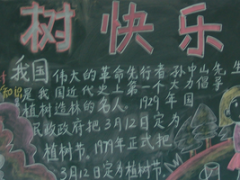 树快乐
我国伟大的革命先行者孙中山先生
是我国近代史上第一个大力倡导
植树造林的名人。1929年国
民政府把3月12日定为
植树节。1979年正式把
3月12日定为植树节
知识